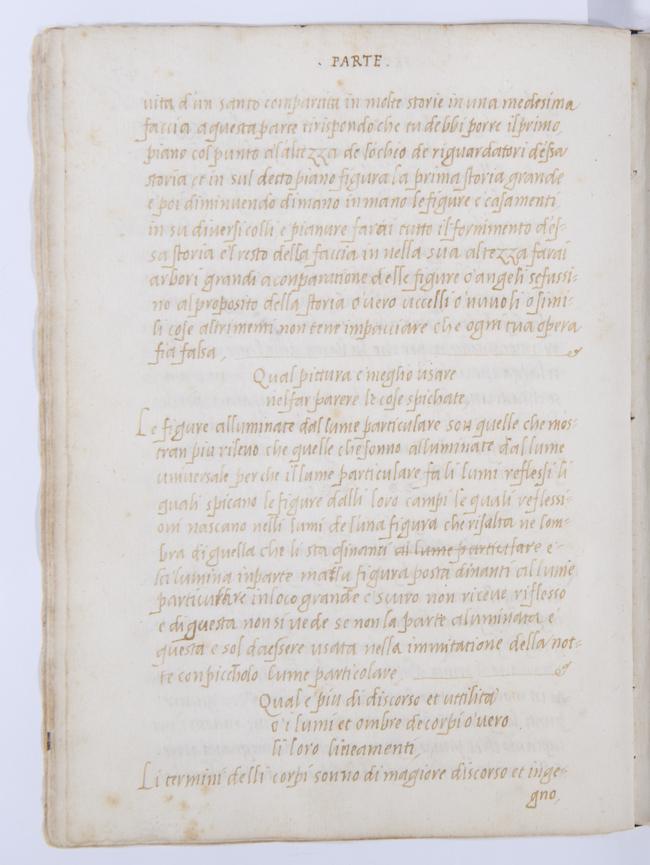 . PARTE .
uita d'un santo compartita in molte storie in una medesima
faccia a questa parte ti rispondo che tu debbi porre il primo
piano col punto al altezza de lochio de riguardatori dessa
storia et in sul detto piano figura la prima storia grande
e poi diminuendo di mano in mano le figure e casamenti
in su diversi colli e pianure farai tutto il fornimento des-
sa storia e'l resto della faccia in nella sua altezza farai
arbori grandi a conparatione delle figure o angeli se fussi-
no al proposito della storia o vero uccelli o nuuoli o simi-
li cose altrimenti non tene impacciare che ogni tua opera
fia falsa,
Qual pittura e meglio usare
nel far parere le cose spichate
Le figure alluminate dal lume particulare son quelle che mos-
tran piu rilevo che quelle che sonno alluminate dal lume
universale perche il lume particulare fa li lumi reflessi li
quali spicano le figure dalli loro campi le quali reflessi-
oni nascano nelli lumi de luna figura che risalta ne lom-
bra di quella che li sta dinanti al lume particulare e
la lumina in parte ma la figura posta dinanti al lume
particulare in loco grande e scuro non riceve riflesso
e di questa non si vede se non la parte aluminata e
questa e sol da essere usata nella immitatione della not-
te con picholo lume particolare
Qual e piu di discorso et utilita
o i lumi et ombre de corpi o uero
li loro lineamenti,
Li termini delli corpi sonno di magiore discorso et inge-
gno,